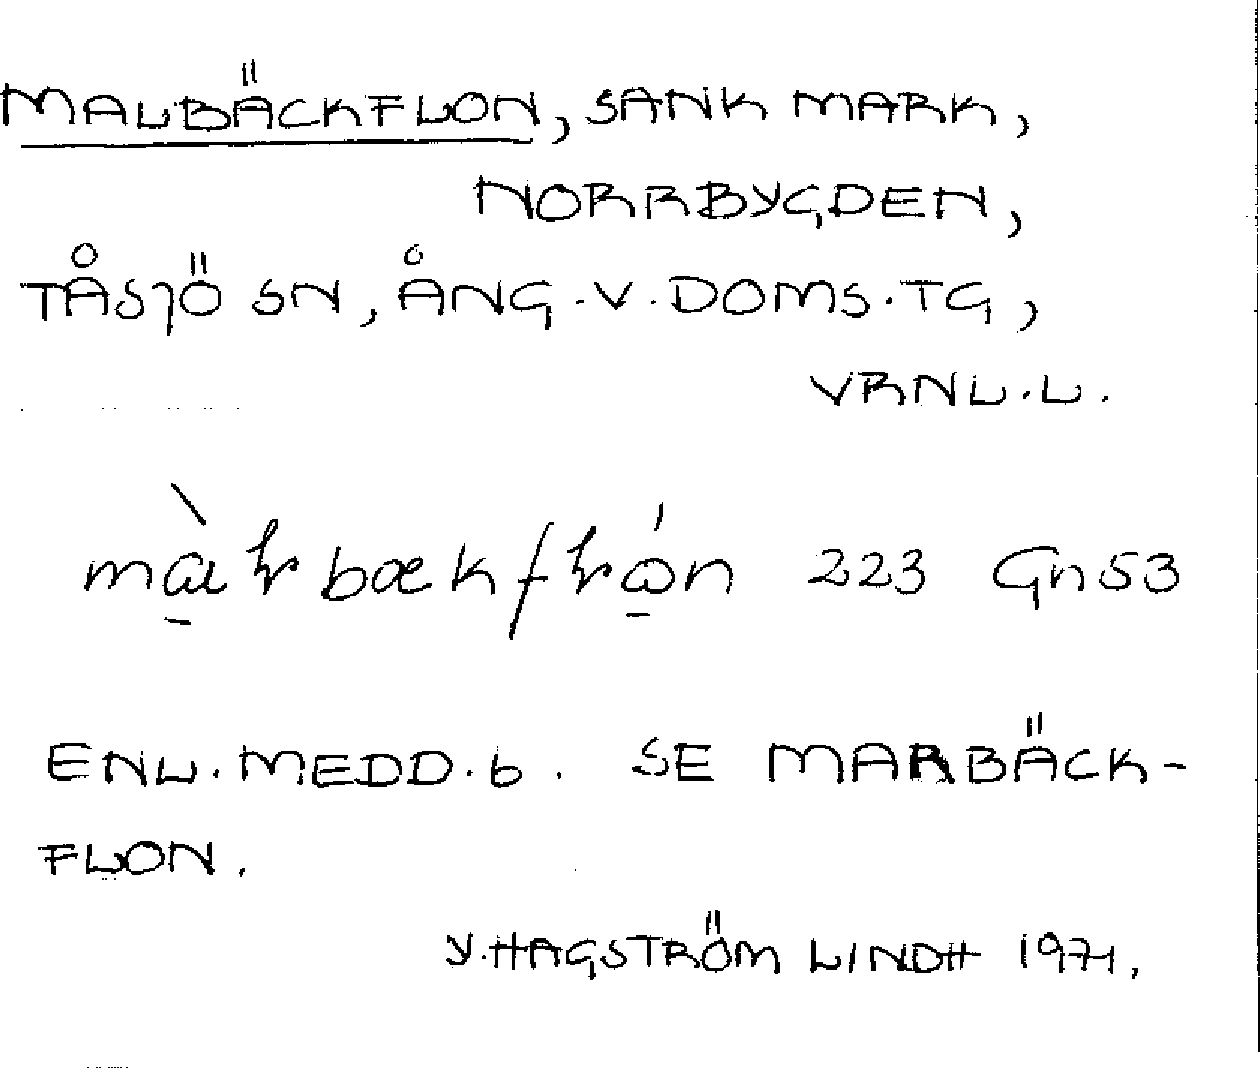 MALBÄCKFLON, SANK MARK,
NORRBYGDEN,
TÅSJÖ SN, ÅNG.V.DOMS.TG,
VRNL.L.
223 Gn53
ENL.MEDD.b. SE MARBÄCK-
FLON.
Y.HAGSTRÖM LINDH 1971,